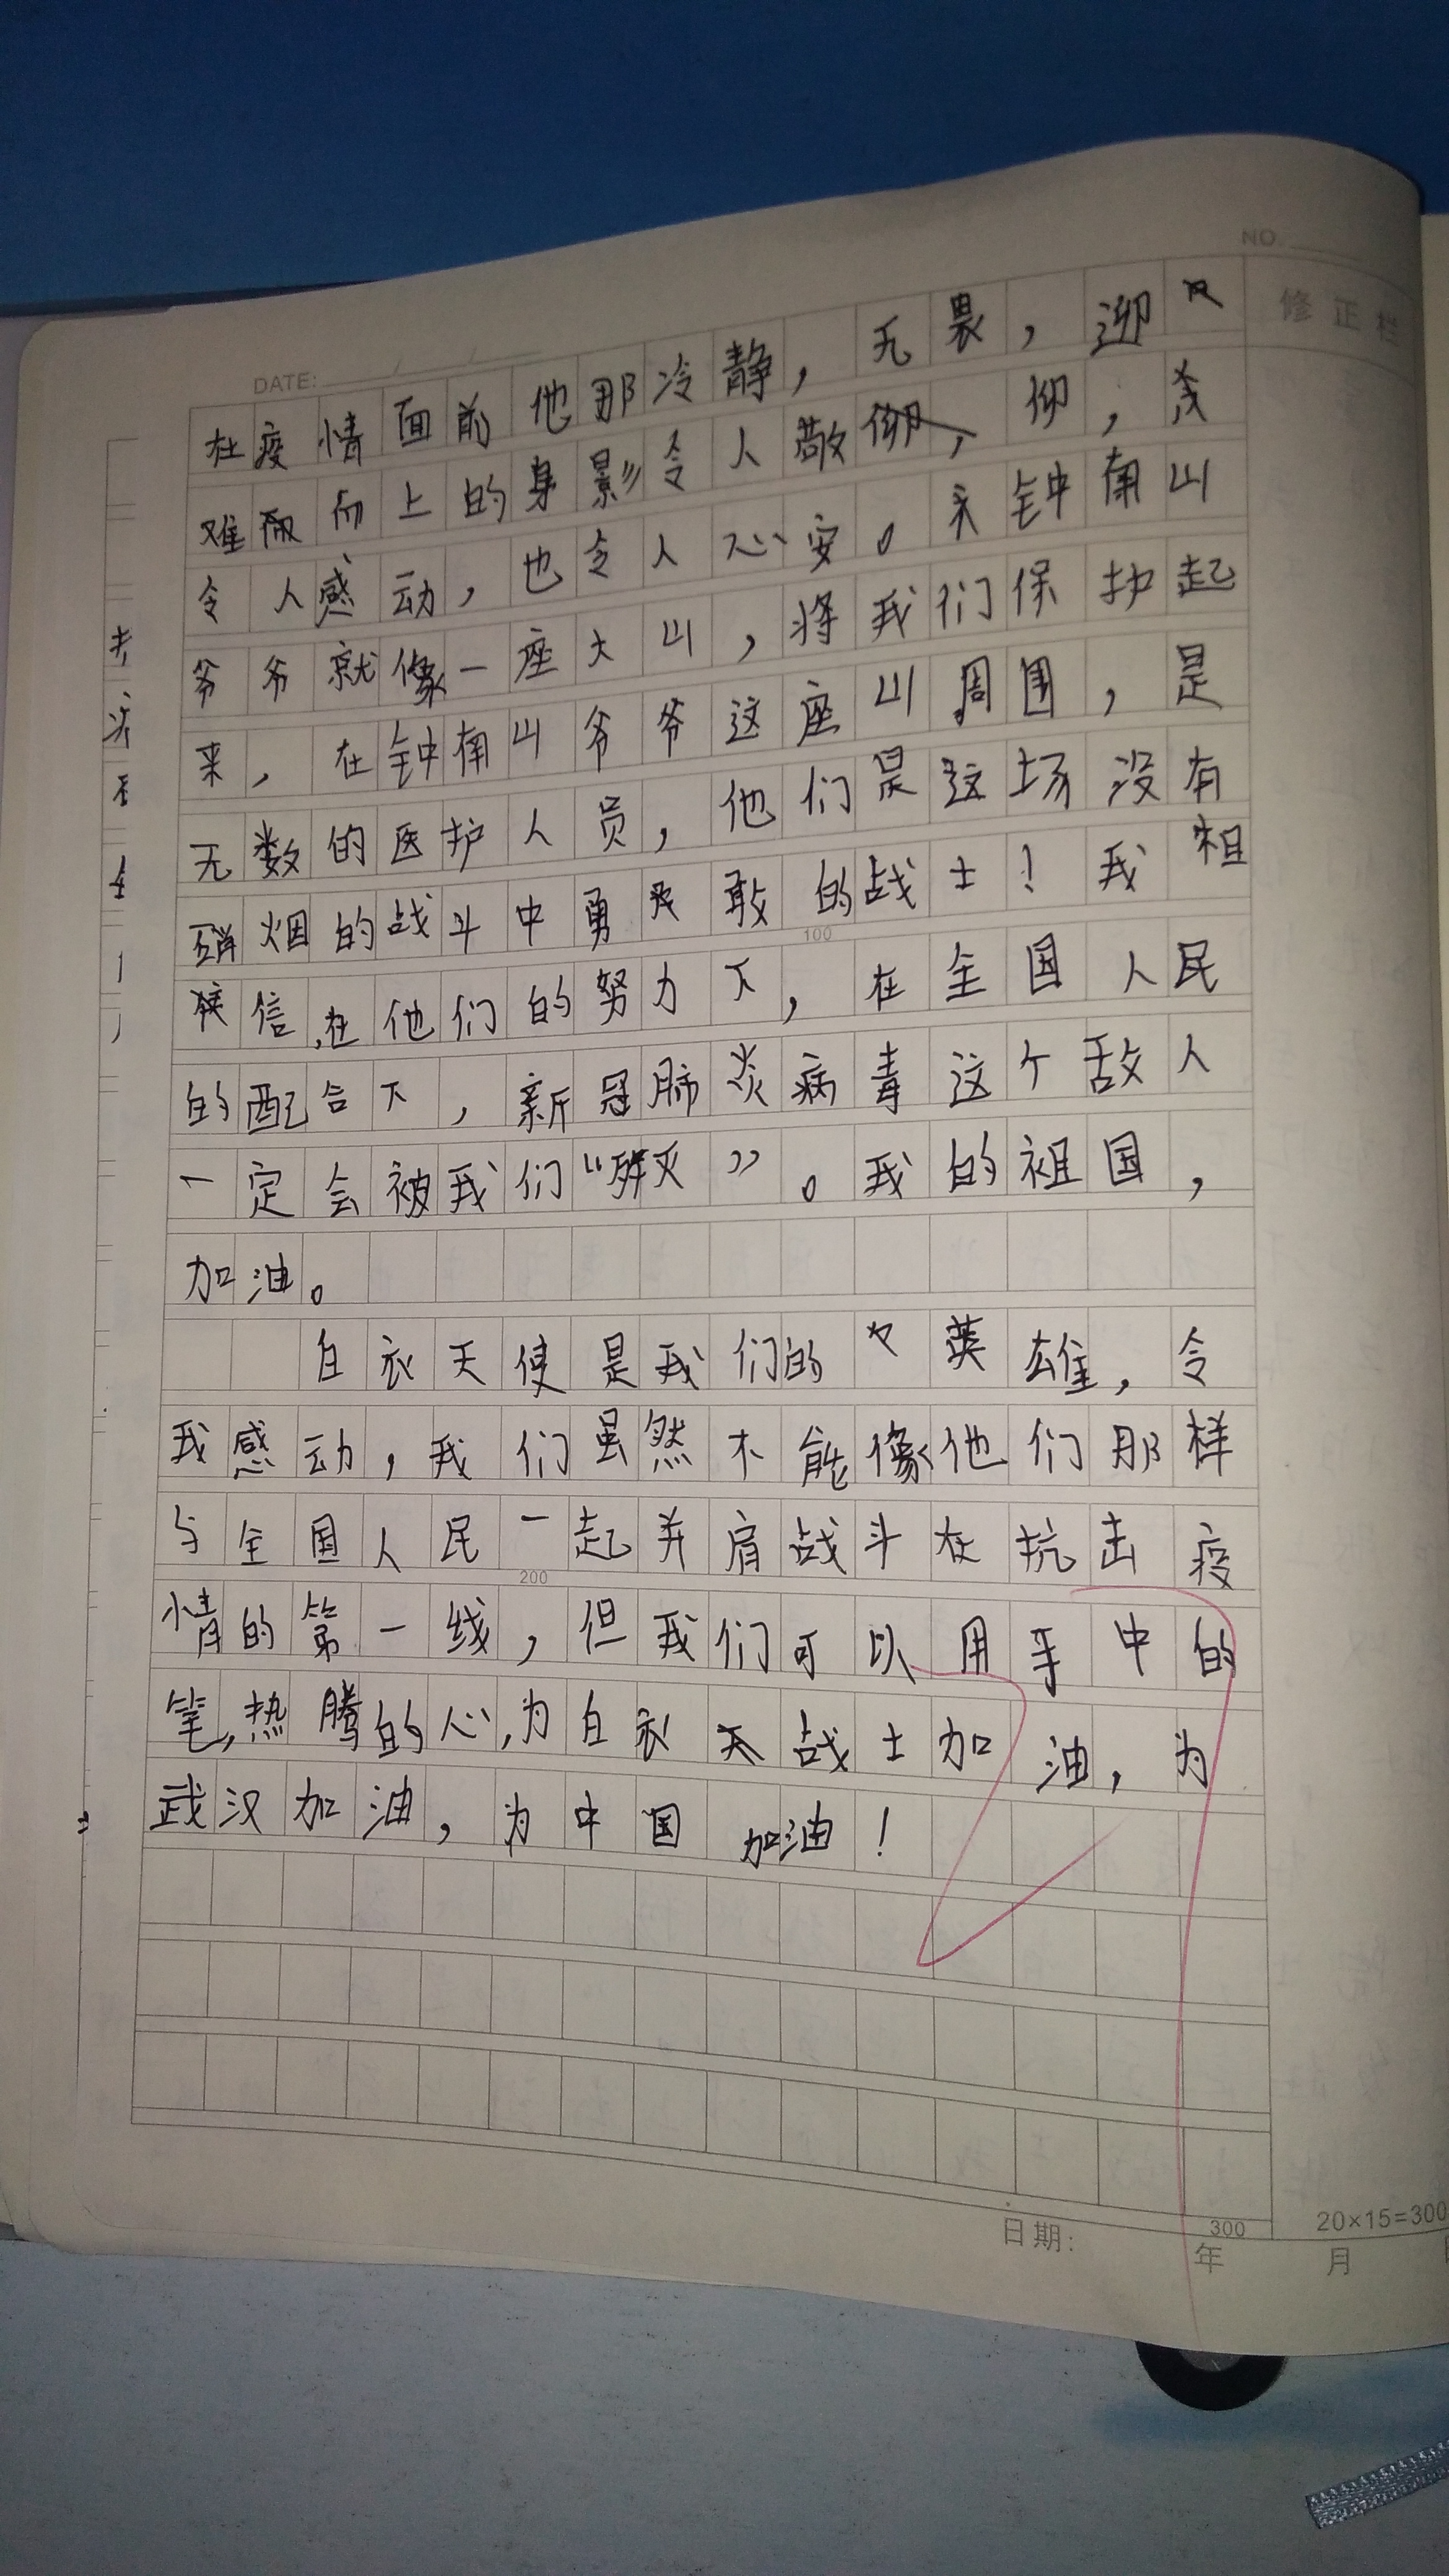 NO.
修正栏
DATE:
在疫情面前他那冷静，无畏，迎
难而上的身影令人敬仰，
令人感动，也令人心安。钟南山
爷爷就像一座大山，将我们保护起
来，在钟南山爷爷这座山周围，是
无数的医护人员，他们是这场没有
硝烟的战斗中勇敢的战士！我相
信，在他们的努力下，在全国人民
100
的配合下，新冠肺炎病毒这个敌人
一定会被我们“歼灭”。我的祖国，
加油。
白衣天使是我们的英雄，令
我感动，我们虽然不能像他们那样
与全国人民一起并肩战斗在抗击疫
200
情的第一线，但我们可以用手中的
笔，热腾的心，为白衣战士加油，为
武汉加油，为中国加油！
300
20×15=300
日期： 年 月